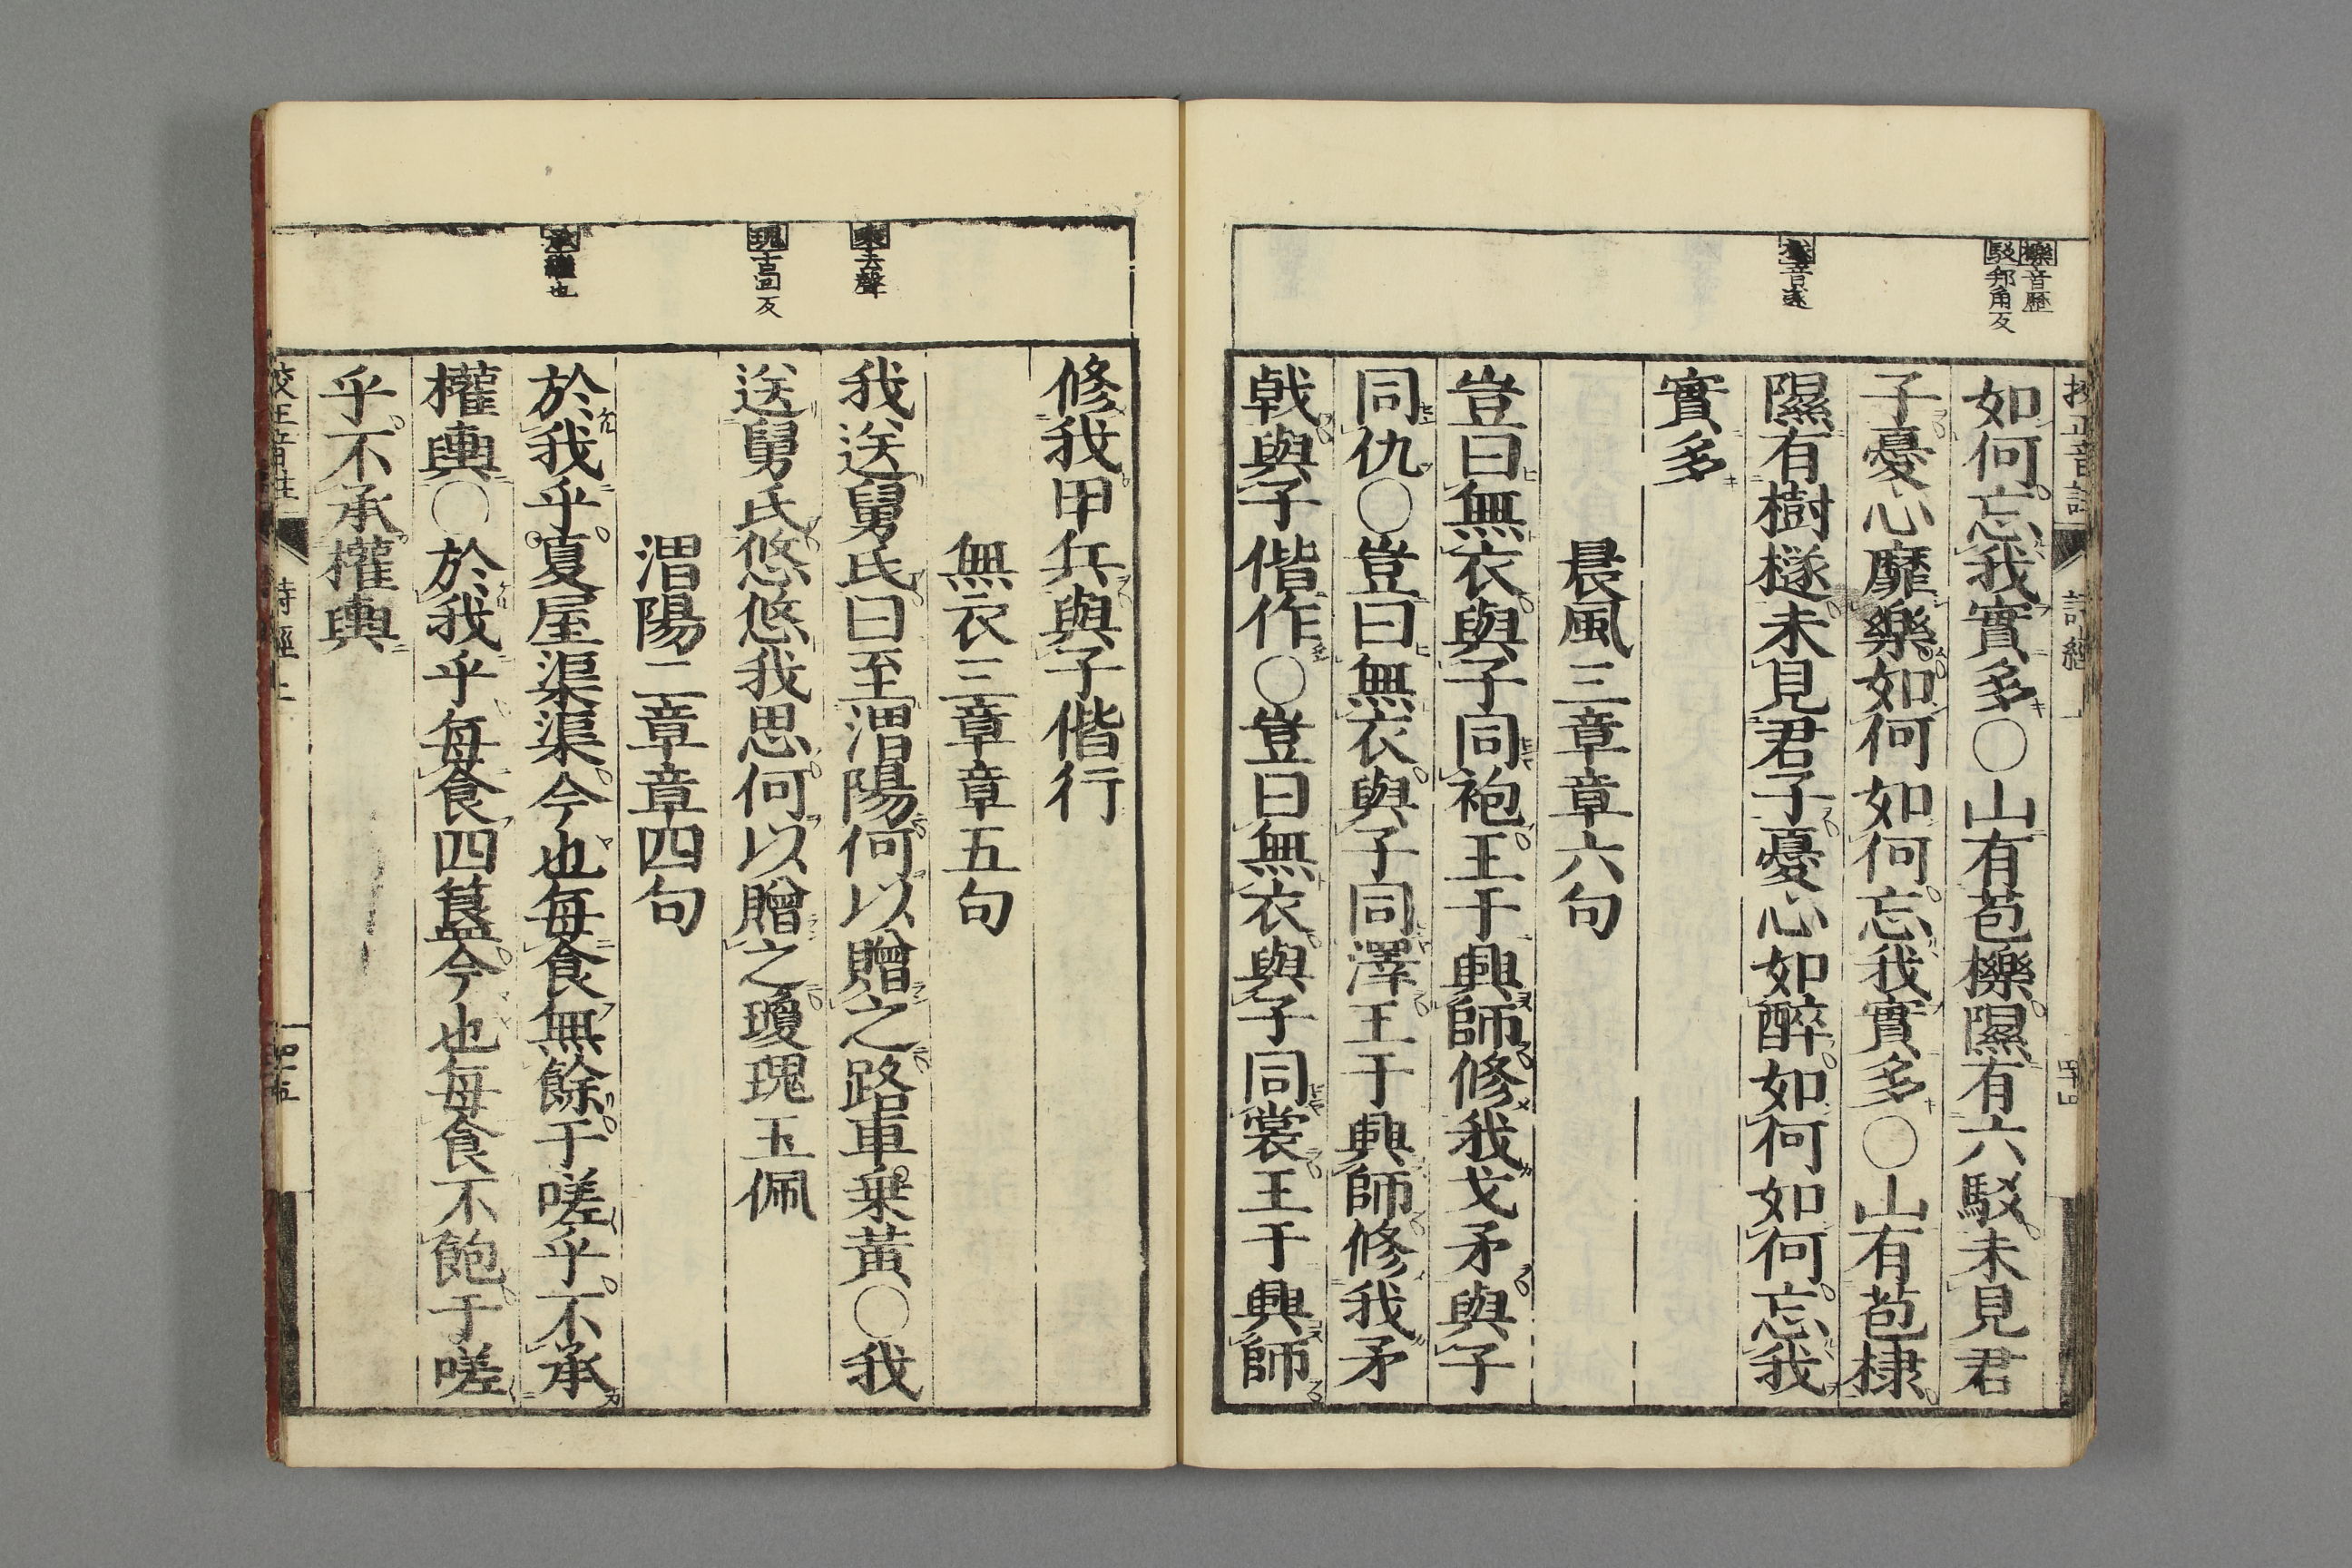 櫟音歷
駁邦角反
檖音遂
如何忘我實多〇山有苞櫟隰有六駁未見君
子憂心靡樂如何如何忘我實多〇山有苞棣
隰有樹檖未見君子憂心如醉如何如何忘我
實多
晨風三章章六句
豈曰無衣與子同袍王于興師修我戈矛與子
同仇〇豈曰無衣與子同澤王于興師修我矛
戟與子偕作〇豈曰無衣與子同裳王于興師
乗去聲
瑰古回反
修我甲兵與子偕行
無衣三章章五句
我送舅氏曰至渭陽何以贈之路車乗黃〇我
送舅氏悠悠我思何以贈之瓊瑰玉佩
渭陽二章章四句
於我乎夏屋渠渠今也每食無餘于嗟乎不承
權輿〇於我乎每食四簋今也每食不飽于嗟
乎不承權輿
校正音註
詩經上